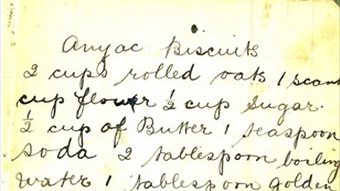 Anyac Biscuits
2 cups rolled oats 1 scant
cup flower ½ cup sugar.
½ cup of Butter 1 teaspoon
soda 2 tablespoon boiling
water 1 tablespoon golden